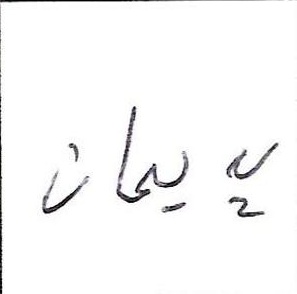 پیمان